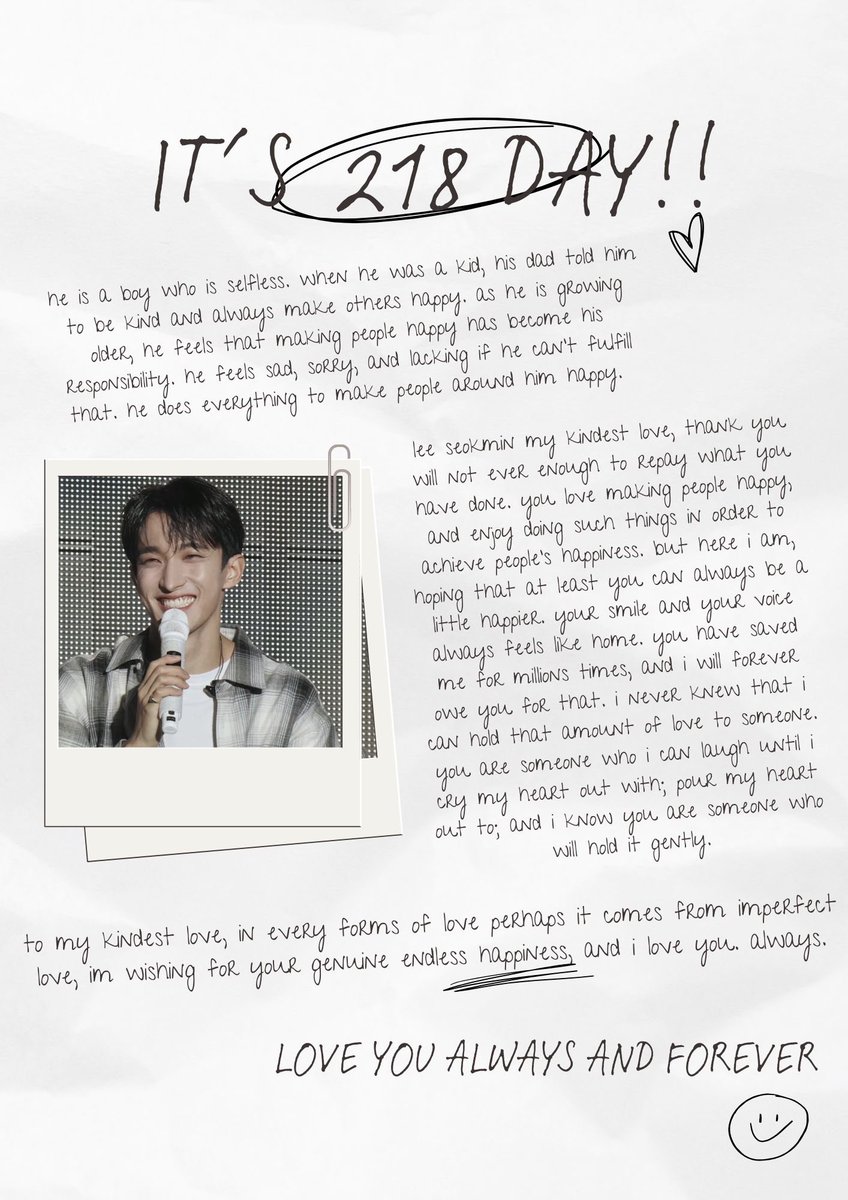 IT'S 218 DAY!!
he is a boy who is selfless. when he was a kid, his dad told him
to be kind and always make others happy. as he is growing
older, he feels that making people happy has become his
responsibility. he feels sad, sorry, and lacking if he can't fulfill
that. he does everything to make people around him happy.
lee seokmin my kindest love, thank you
will not ever enough to repay what you
have done. you love making people happy,
and enjoy doing such things in order to
achieve people's happiness. but here i am,
hoping that at least you can always be a
little happier. your smile and your voice
always feels like home. you have saved
me for millions times, and i will forever
owe you for that. i never knew that i
can hold that amount of love to someone.
you are someone who i can laugh until i
cry my heart out with; pour my heart
out to; and i know you are someone who
will hold it gently.
to my kindest love, in every forms of love perhaps it comes from imperfect
love, im wishing for your genuine endless happiness, and i love you. always.
LOVE YOU ALWAYS AND FOREVER